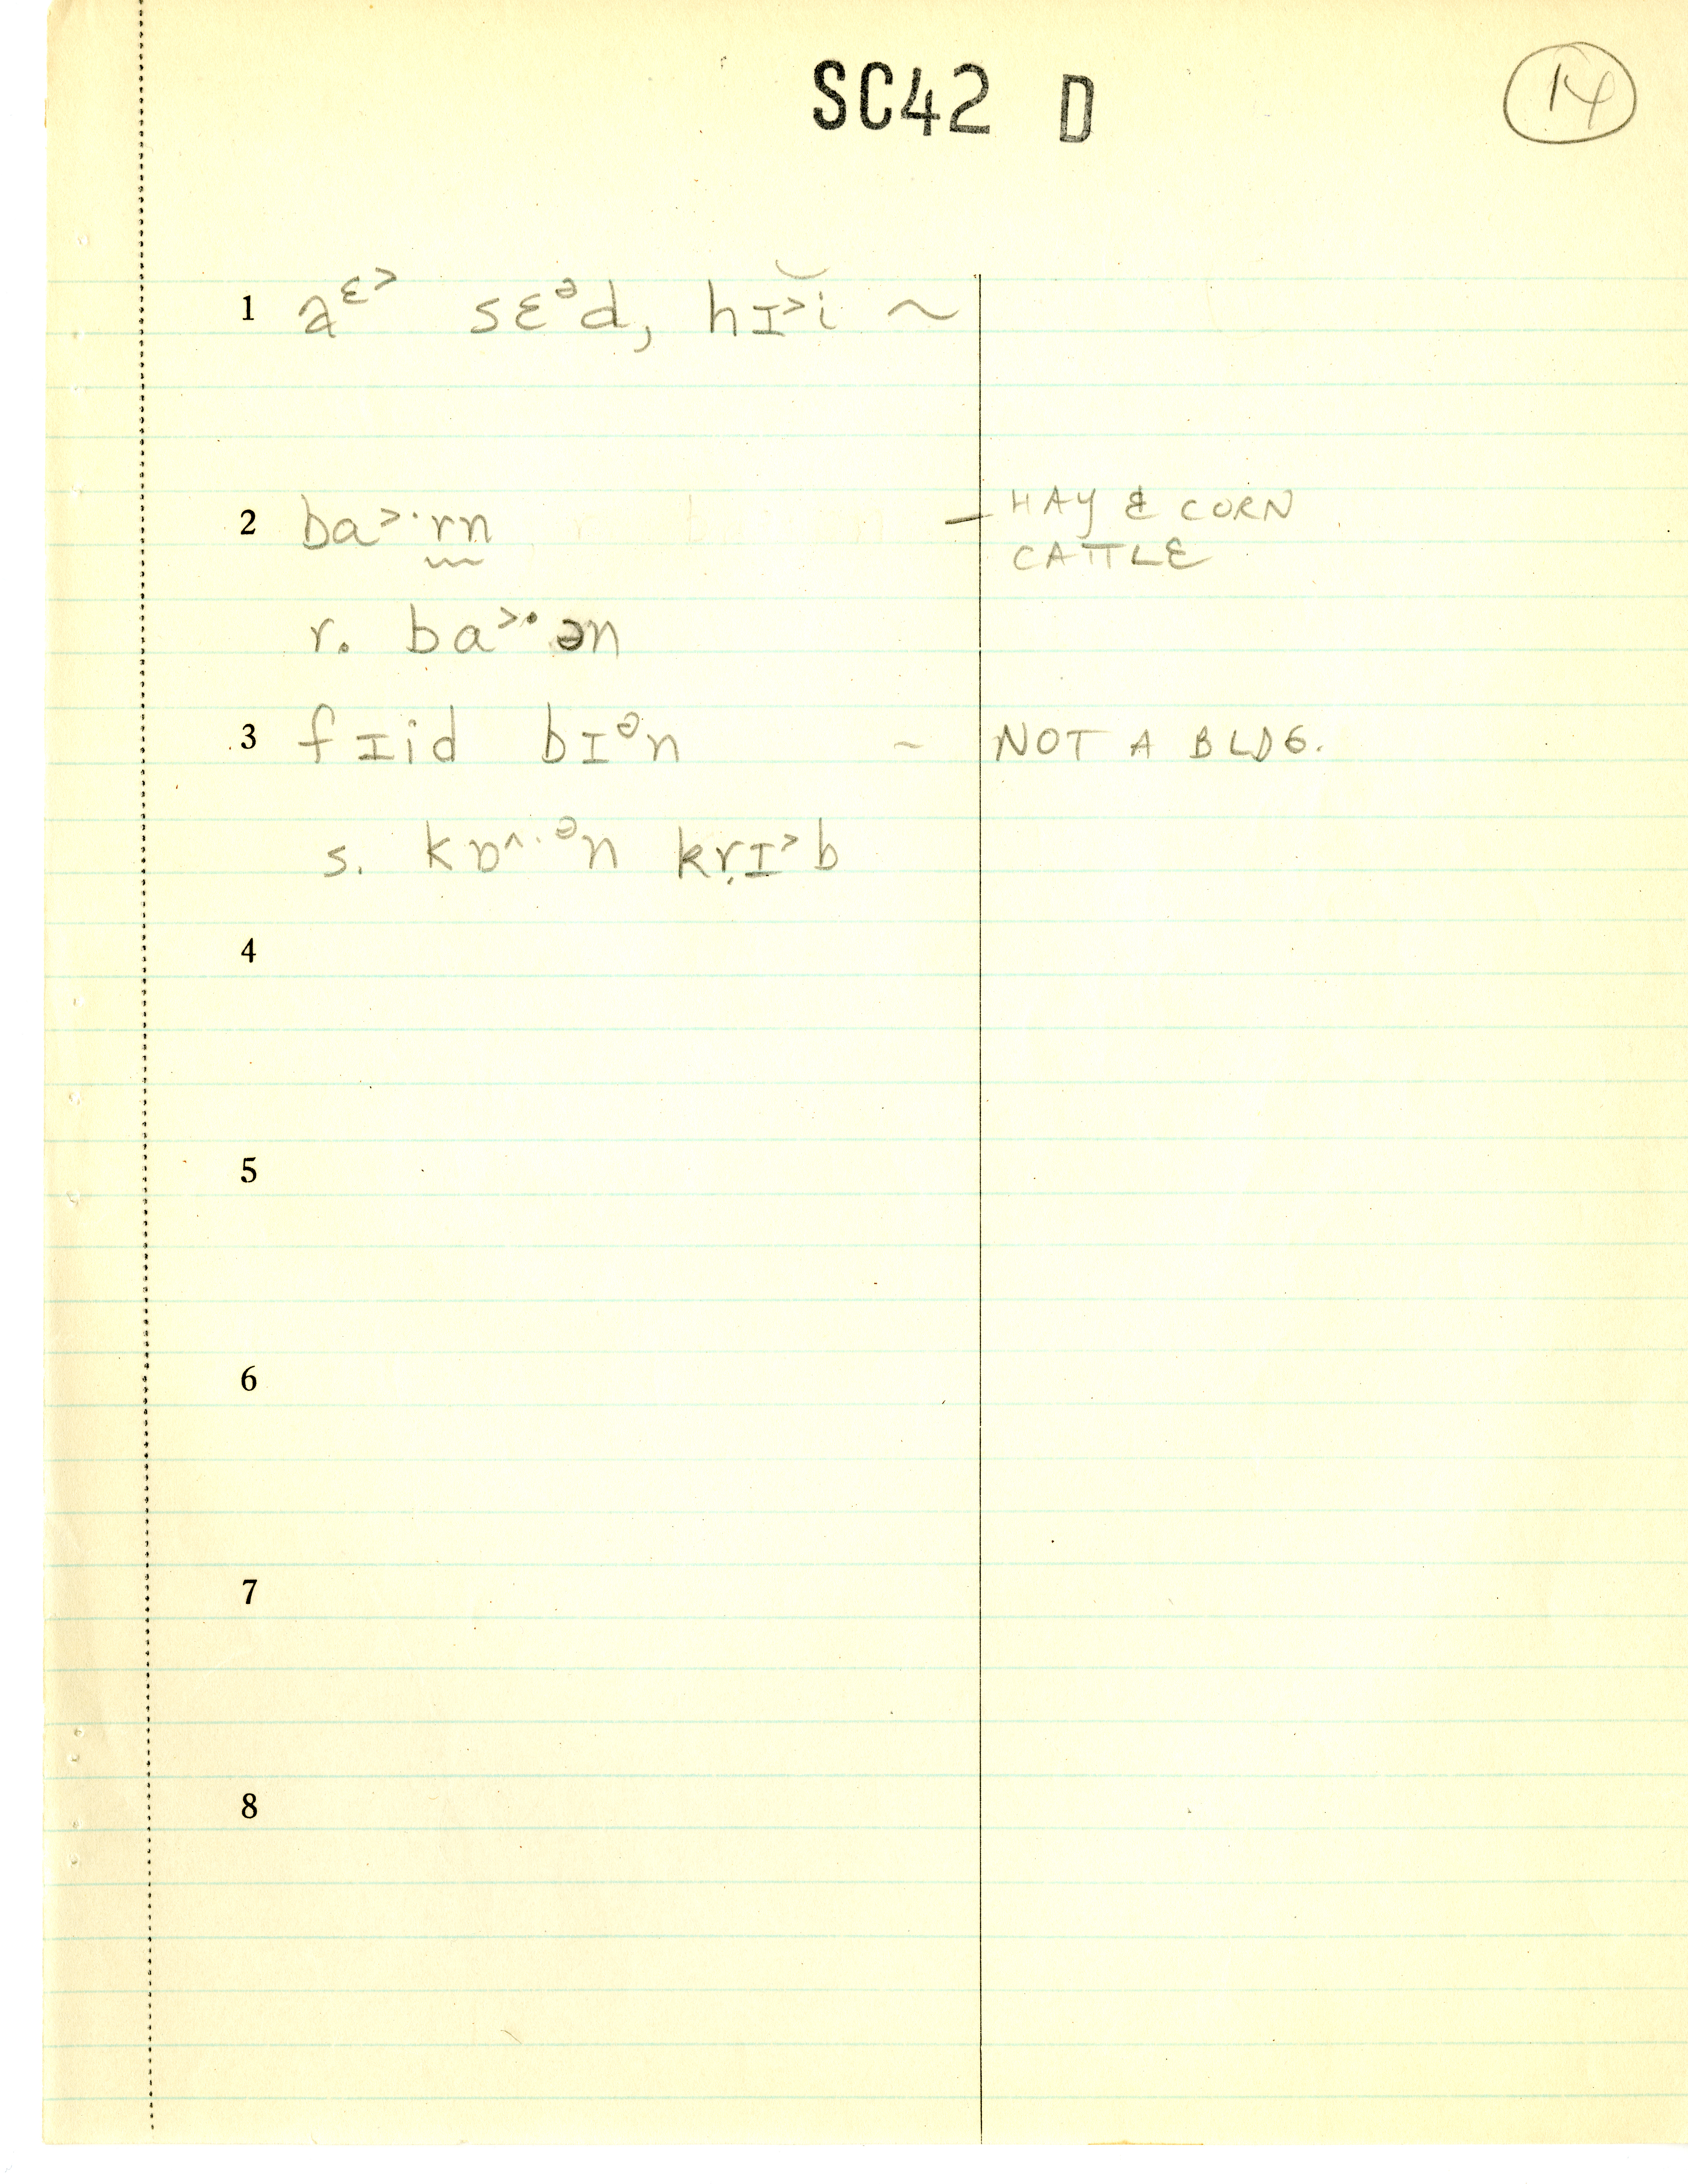 SC42 D
14
1 aᵋ˃ sɛᵊd, hɪ˃i ~
2 ba˃·rn – HAY & CORN
CATTLE
r. ba˃·ən
3 fɪid bɪᵊn ~ NOT A BLDG.
s. kɒ^·ᵊn kṛɪ˃b
4
5
6
7
8